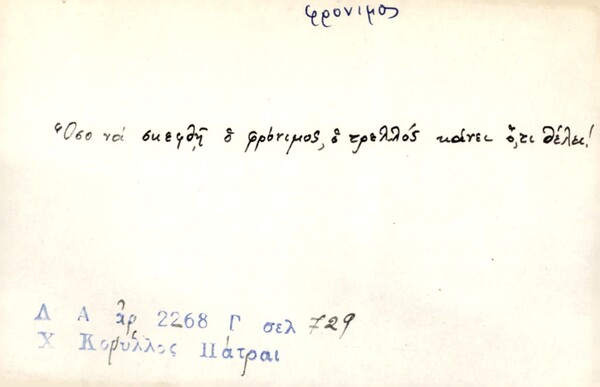 φρονιμος
Ὅσο νά σκεφθῇ ὁ φρόνιμος, ὁ τρελλός κάνει ὅ,τι θέλει!
Λ Α ἀρ 2268 Γ σελ 729
Χ Κορύλλος Πάτραι